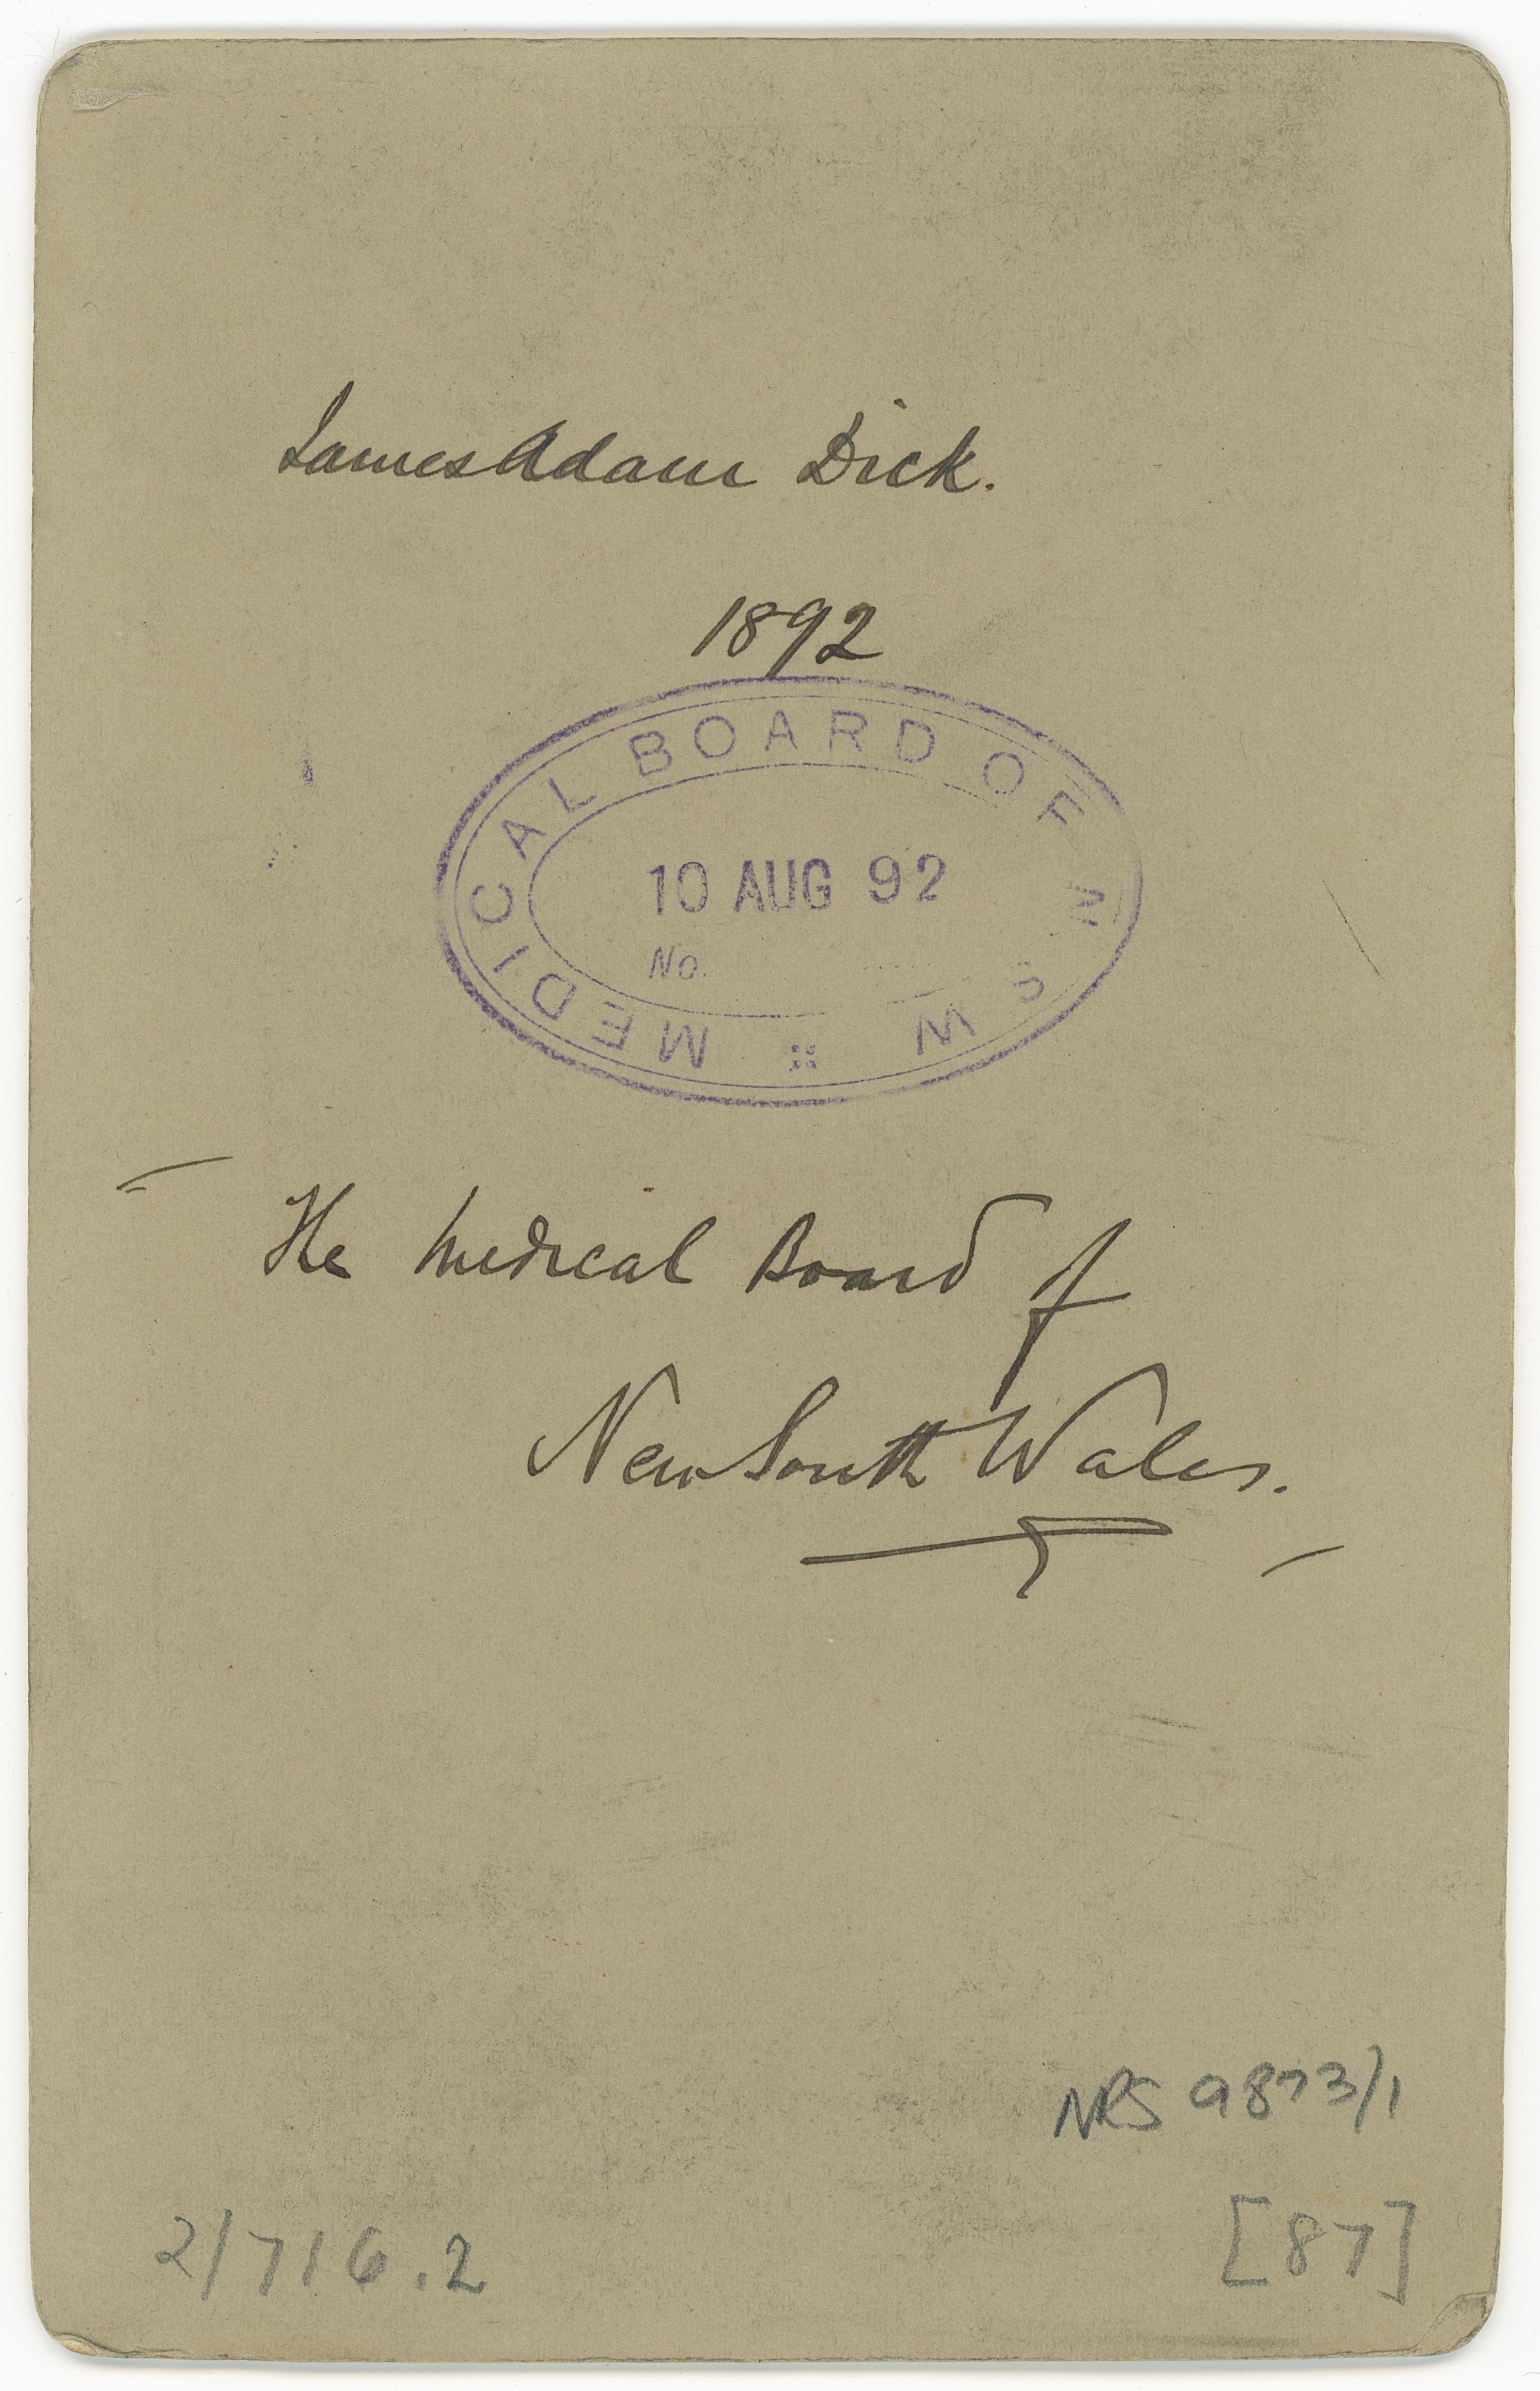 James Adam Dick.
1892
MEDICAL BOARD OF N S W
10 AUG 92
No.
The Medical Board of
New South Wales.
NRS 9873/1
2/716.2
[87]